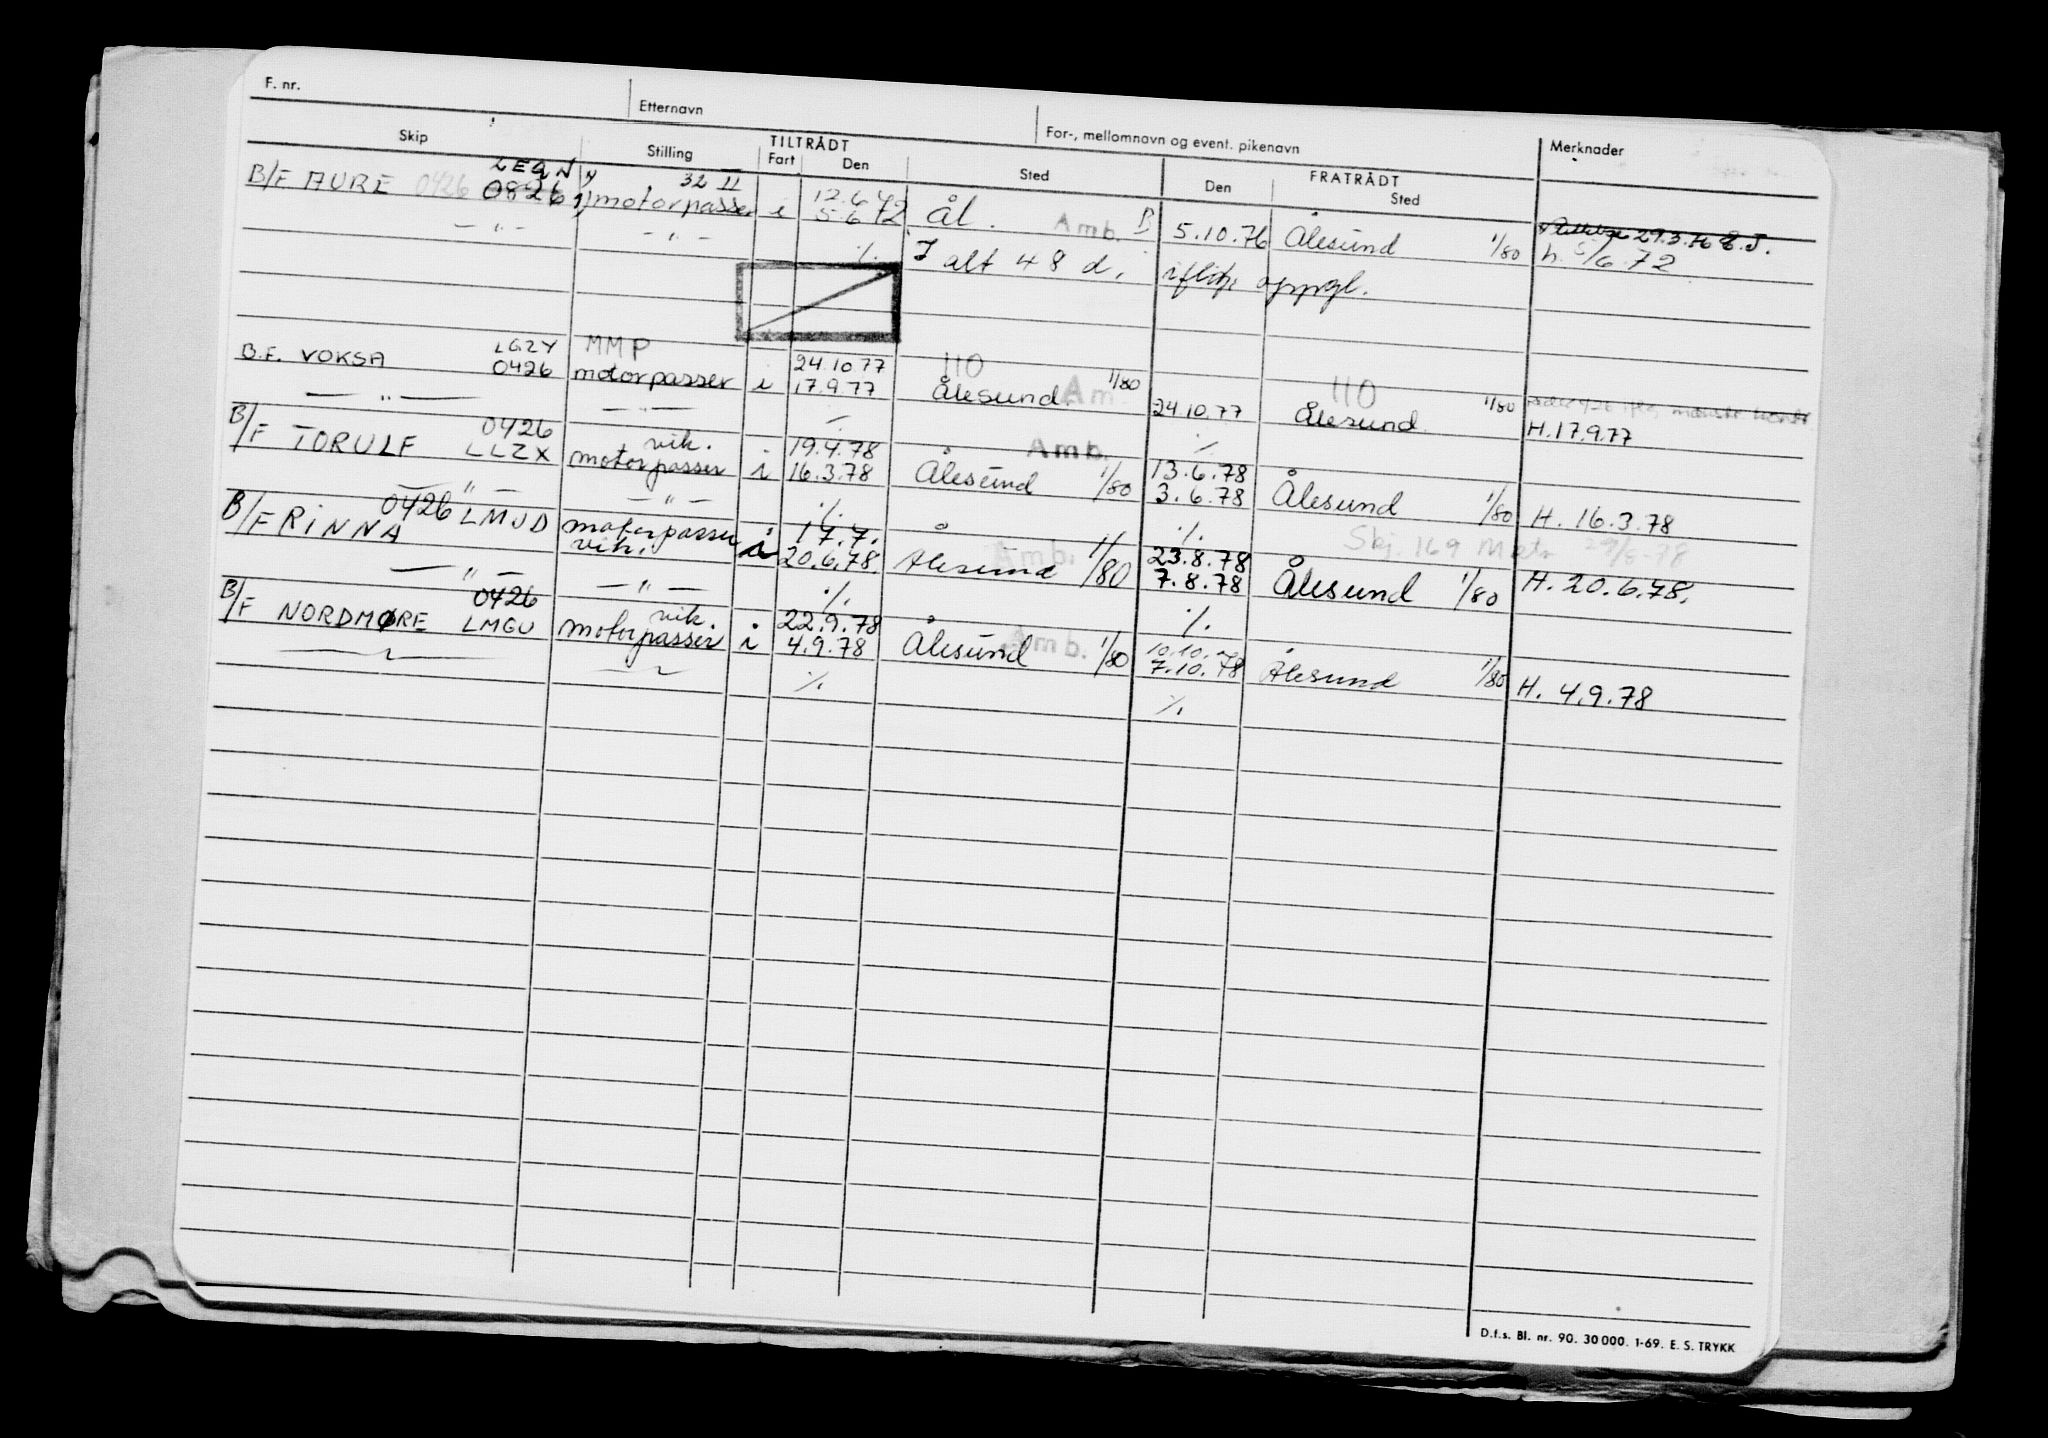 F. nr.
Etternavn
For-, mellomnavn og event. pikenavn
Merknader
Skip
Stilling
TILTRÅDT
Fart
Den
Sted
FRATRÅDT
Den
Sted
LEQN 32 II
B/F AURE 0426 0826 motorpasser i 12.6.72 Ål. Amb. B 5.10.76 Ålesund 1/80 29.3.76
5.6.72 h. 5/6.72
— " — — " — ٪. I alt 48 d. iflg. oppgl.
LGZY MMP 24.10.77 110 110
B.F. VOKSA 0426 motorpasser i 17.9.77 Ålesund. Am 1/80 24.10.77 Ålesund 1/80 H.17.9.77
— " — — " — ٪. ٪.
0426 vik. 19.4.78 Amb. 13.6.78
B/F TORULF LLZX motorpasser i 16.3.78 Ålesund 1/80 3.6.78 Ålesund 1/80 H. 16.3.78
— " — — " — ٪. ٪. Sbj. 169 29/8-78
0426 LMUD motorpasser i 17.7. 23.8.78
B/F RINNA vik. 20.6.78 Ålesund Amb. 1/80 7.8.78 Ålesund 1/80 H. 20.6.78.
— " — — " — ٪. ٪.
0426 vik. 22.9.78 10.10.
B/F NORDMØRE LMGU motorpasser i 4.9.78 Ålesund Amb. 1/80 7.10.78 Ålesund 1/80 H. 4.9.78
٪. ٪.
D.f.s. Bl. nr. 90. 30 000. 1-69. E. S. TRYKK